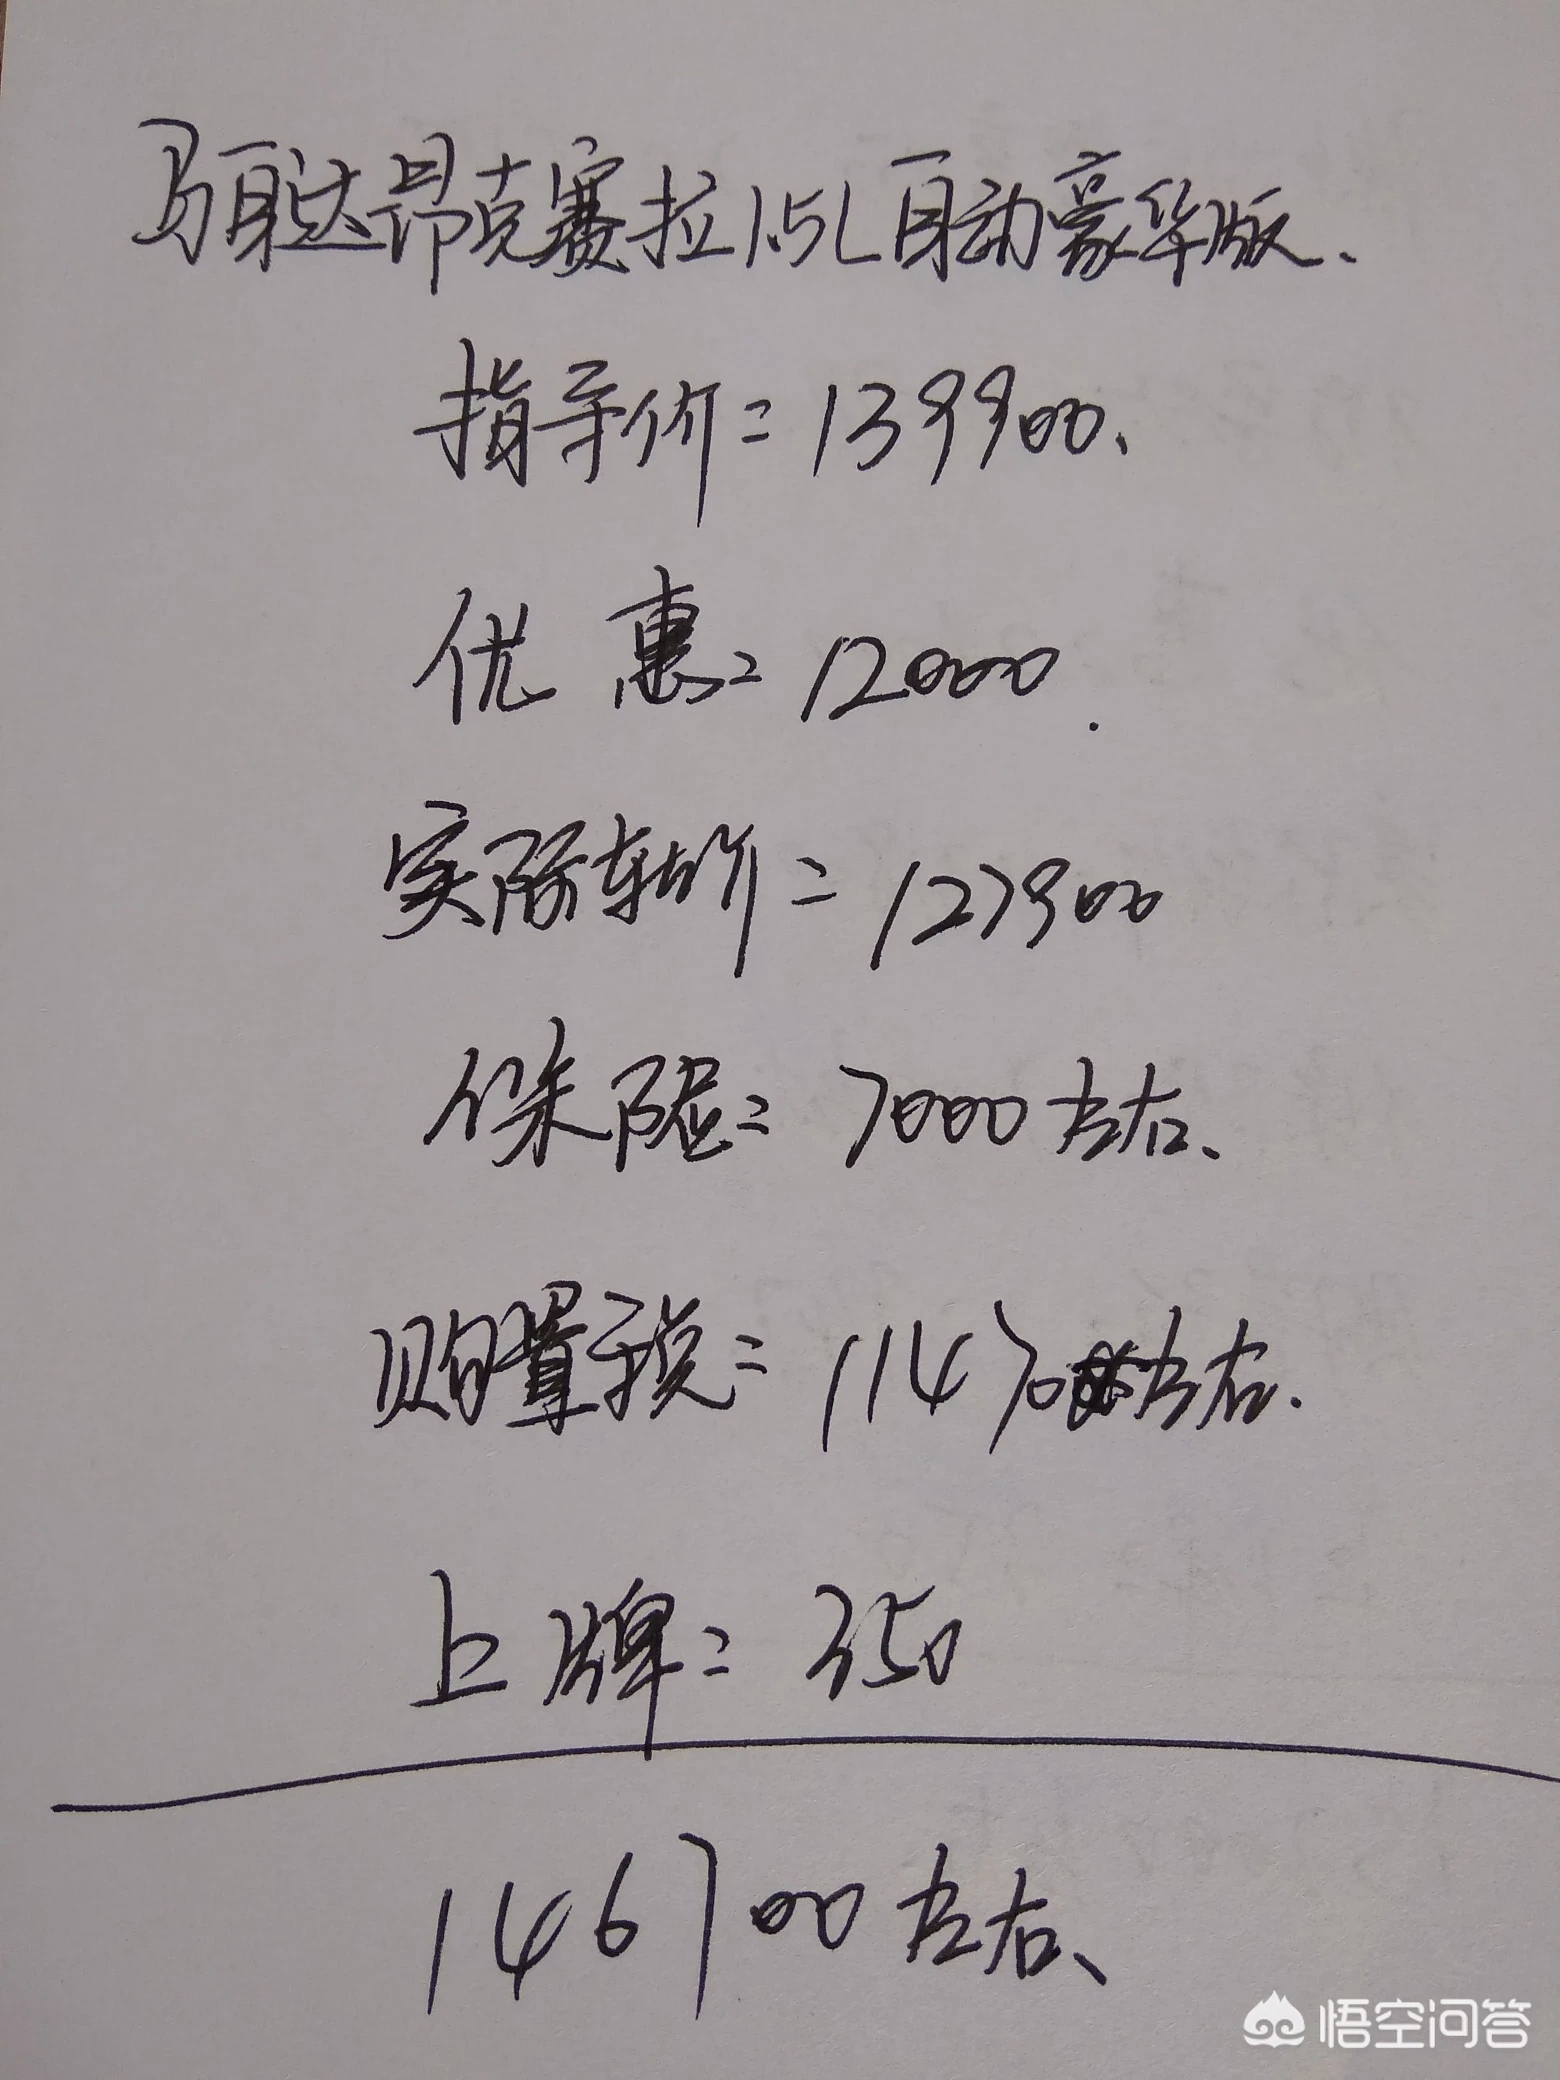 马自达昂克赛拉1.5L自动豪华版、
指导价=139900、
优惠=12000.
实际车价=127900
保险=7000左右、
购置税=11470左右.
上牌=350
146700左右、
悟空问答